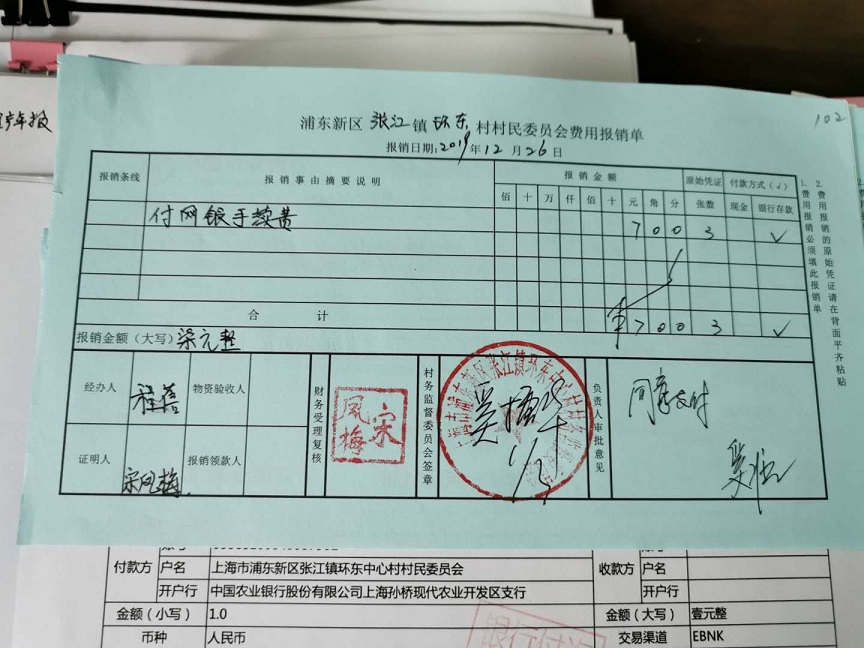 年报
102
浦东新区 张江 镇 环东 村村民委员会费用报销单
报销日期:2019年12月26日
报销条线 报销事由摘要说明 报销金额 原始凭证 付款方式(√)
佰 十 万 仟 佰 十 元 角 分 张数 现金 银行存款
付网银手续费 7 0 0 3 √
合计 ¥ 7 0 0 3 √
报销金额(大写) 柒元整
经办人 程蓓 物资验收人
证明人 宋凤梅 报销领款人
财务受理复核
宋凤梅
村务监督委员会签章
1/3
负责人审批意见
同意支付
1. 费用报销必须填此报销单
2. 费用报销的原始凭证请在背面平齐粘贴
付款方 户名 上海市浦东新区张江镇环东中心村村民委员会 收款方 户名
开户行 中国农业银行股份有限公司上海孙桥现代农业开发区支行 开户行
金额(小写) 1.0 金额(大写) 壹元整
币种 人民币 交易渠道 EBNK
银行付讫